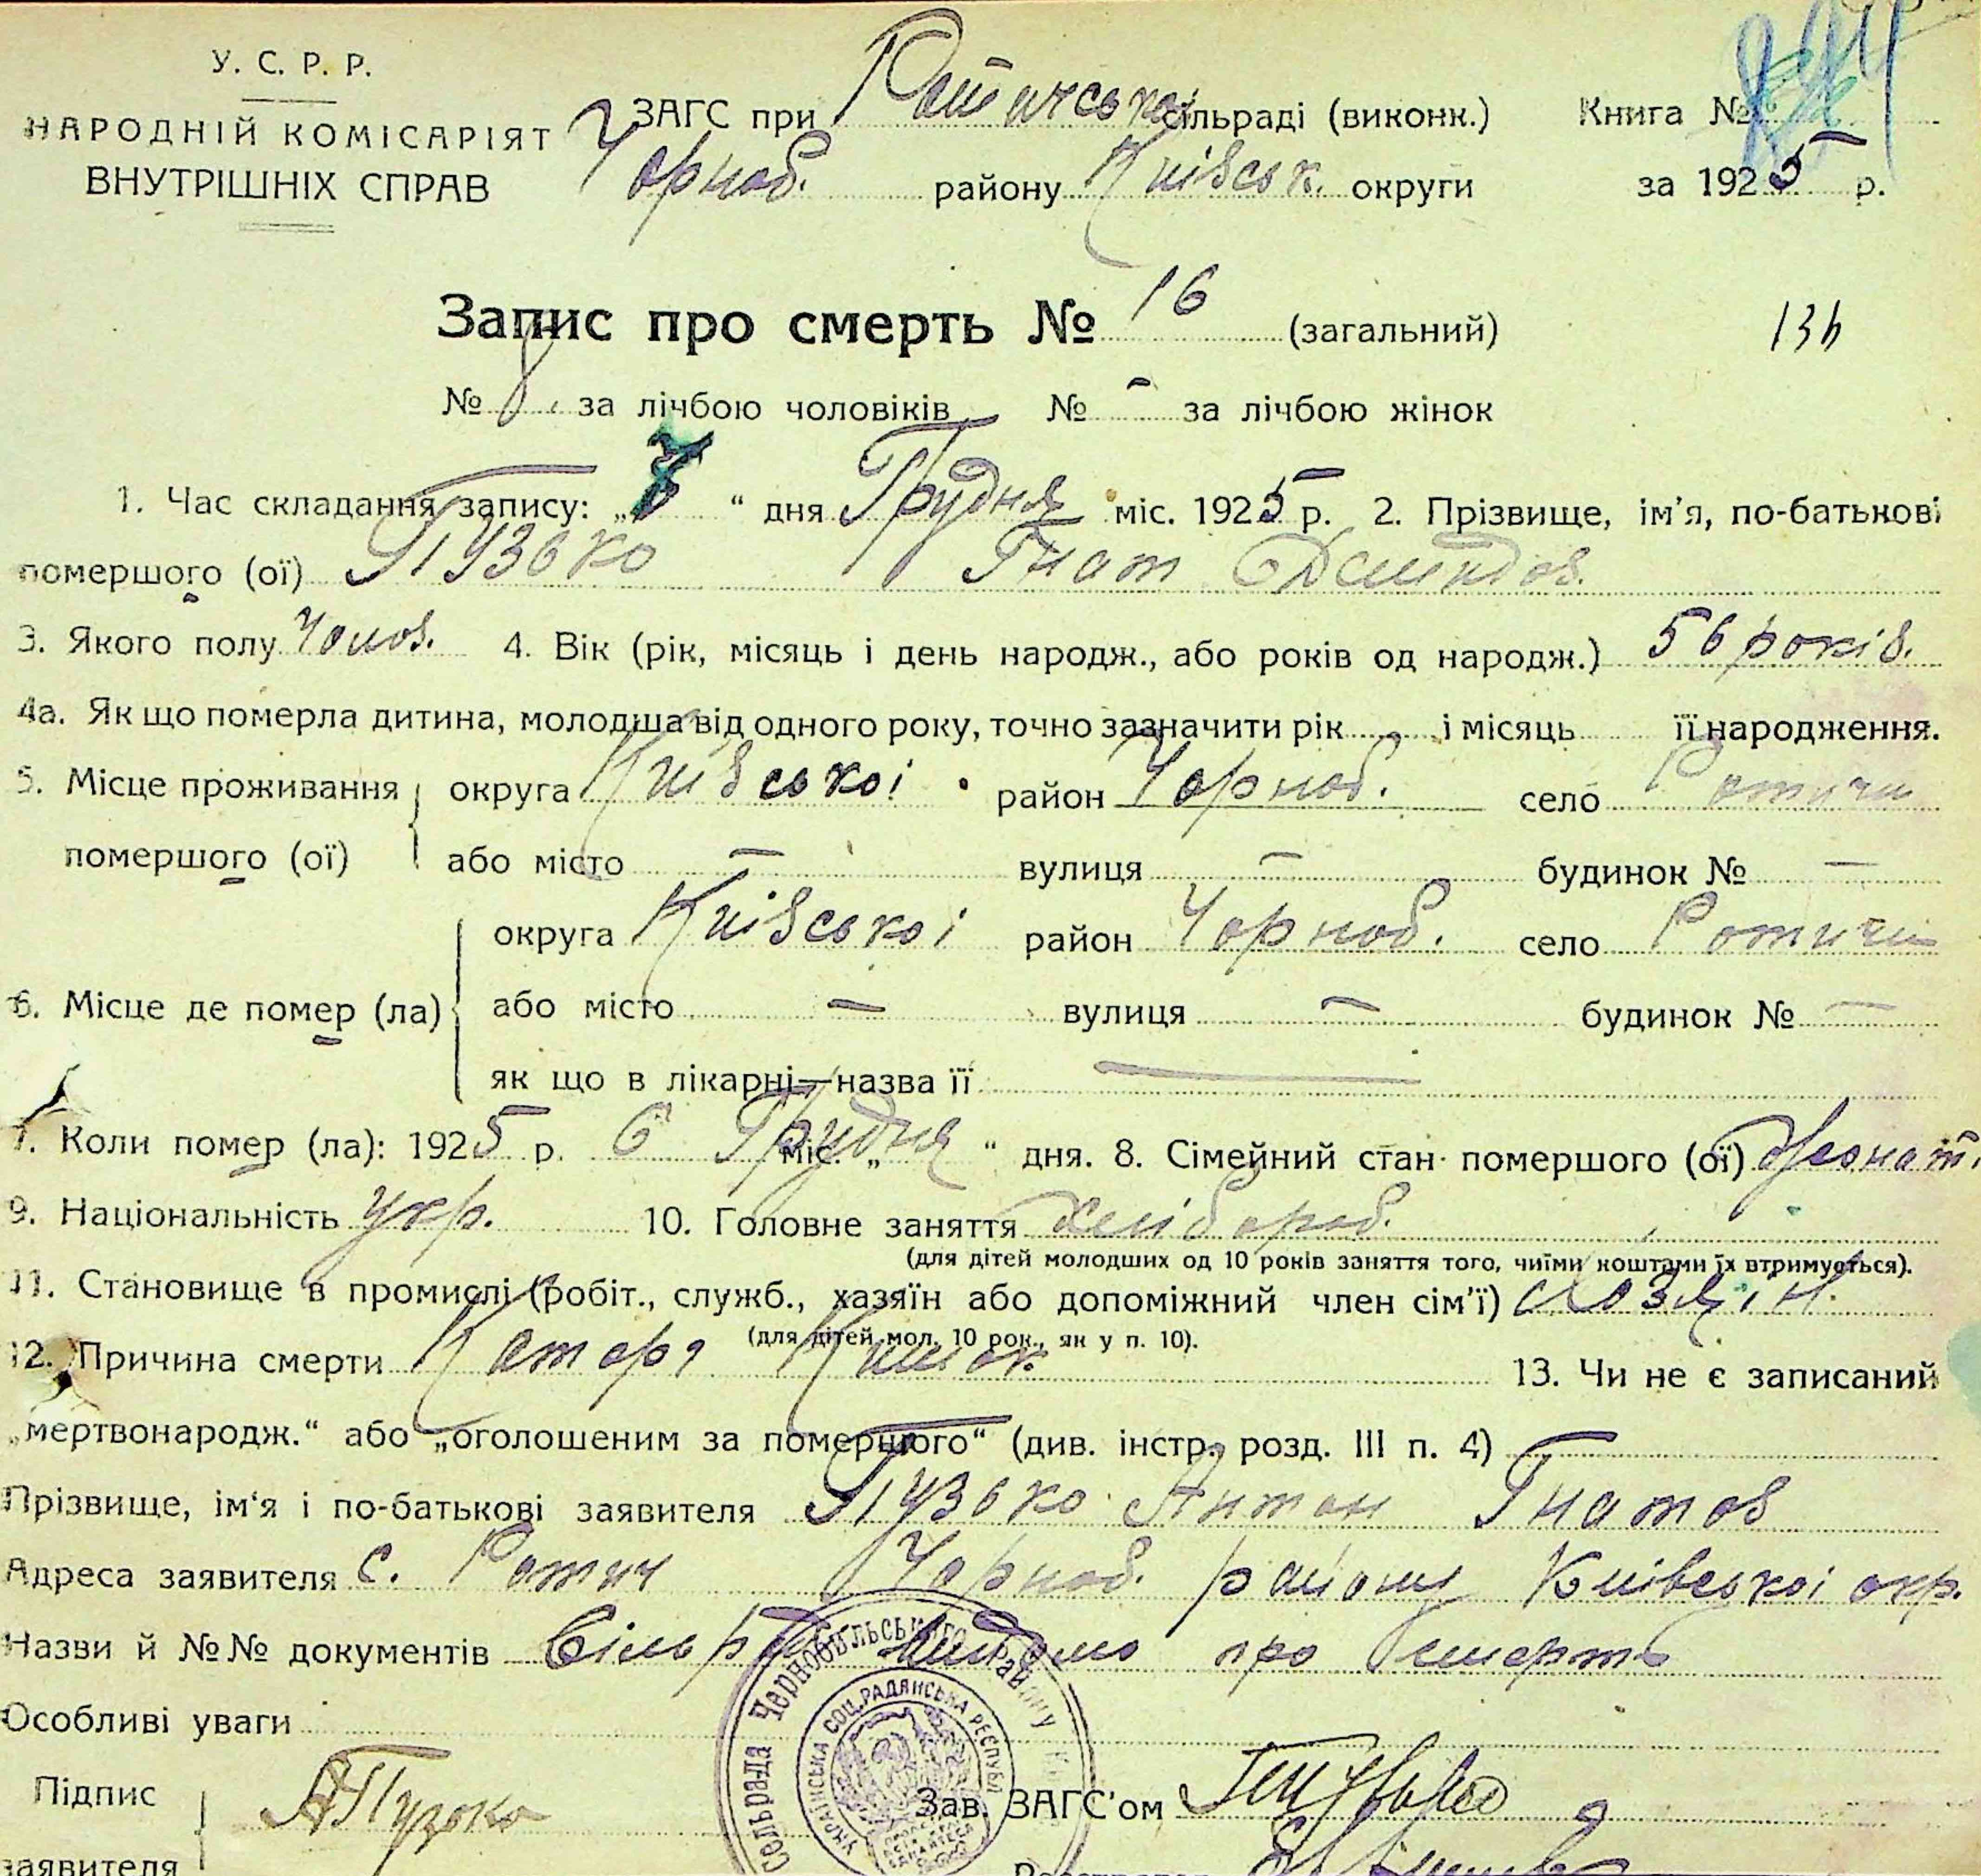 У. С. Р. Р.
НАРОДНІЙ КОМІСАРІЯТ
ВНУТРІШНІХ СПРАВ
ЗАГС при Ротичській сільраді (виконк.)
Чорноб. району Київськ. округи
Книга №
за 1925 р.
Запис про смерть № 16 (загальний)
№ 8 за лічбою чоловіків № – за лічбою жінок
1. Час складання запису: „ “ дня Грудня міс. 1925 р. 2. Прізвище, ім'я, по-батькові
помершого (ої) Пузько Гнат Демидов.
3. Якого полу Чолов. 4. Вік (рік, місяць і день народж., або років од народж.) 56 років.
4а. Як що померла дитина, молодша від одного року, точно зазначити рік і місяць її народження.
5. Місце проживання округа Київської район Чорноб. село Ротичи
помершого (ої) або місто – вулиця – будинок № –
округа Київської район Чорноб. село Ротичи
6. Місце де помер (ла) або місто – вулиця – будинок № –
як що в лікарні—назва її —
7. Коли помер (ла): 1925 р. 6 Грудня міс. „ “ дня. 8. Сімейний стан помершого (ої) Жонат.
9. Національність укр. 10. Головне заняття хлібороб.
(для дітей молодших од 10 років заняття того, чиїми коштами їх втримується).
11. Становище в промислі (робіт., служб., хазяїн або допоміжний член сім'ї) хозяїн.
(для дітей мол. 10 рок., як у п. 10).
12. Причина смерти Катар Кишок 13. Чи не є записаний
„мертвонародж.“ або „оголошеним за помершого“ (див. інстр. розд. III п. 4) —
Прізвище, ім'я і по-батькові заявителя Пузько Антон Гнатов
Адреса заявителя с. Ротич Чорноб. району Київської окр.
Назви й №№ документів про смерть
Особливі уваги
Підпис АПузько Зав. ЗАГС'ом
заявителя
Сельрада Чернобильського Району
УКРАЇНСЬКА СОЦ. РАДЯНСЬКА РЕСПУБ